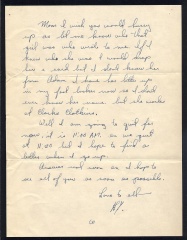 Mom I wish you would hurry
up an let me know who that
girl was who wrote to me. If I
knew who she was I would keep
her a card but I don't know her
from Adam. I have her letter up
in my foot locker now so I don't
even know her name but she works
at Clarks Clothiers.
Well I am going to quit for
now, it is 11:00 AM. an we eat
at 11:30 but I hope to find a
letter when I go up.
Answer real soon an I hope to
see all of you as soon as possible.
Love to all